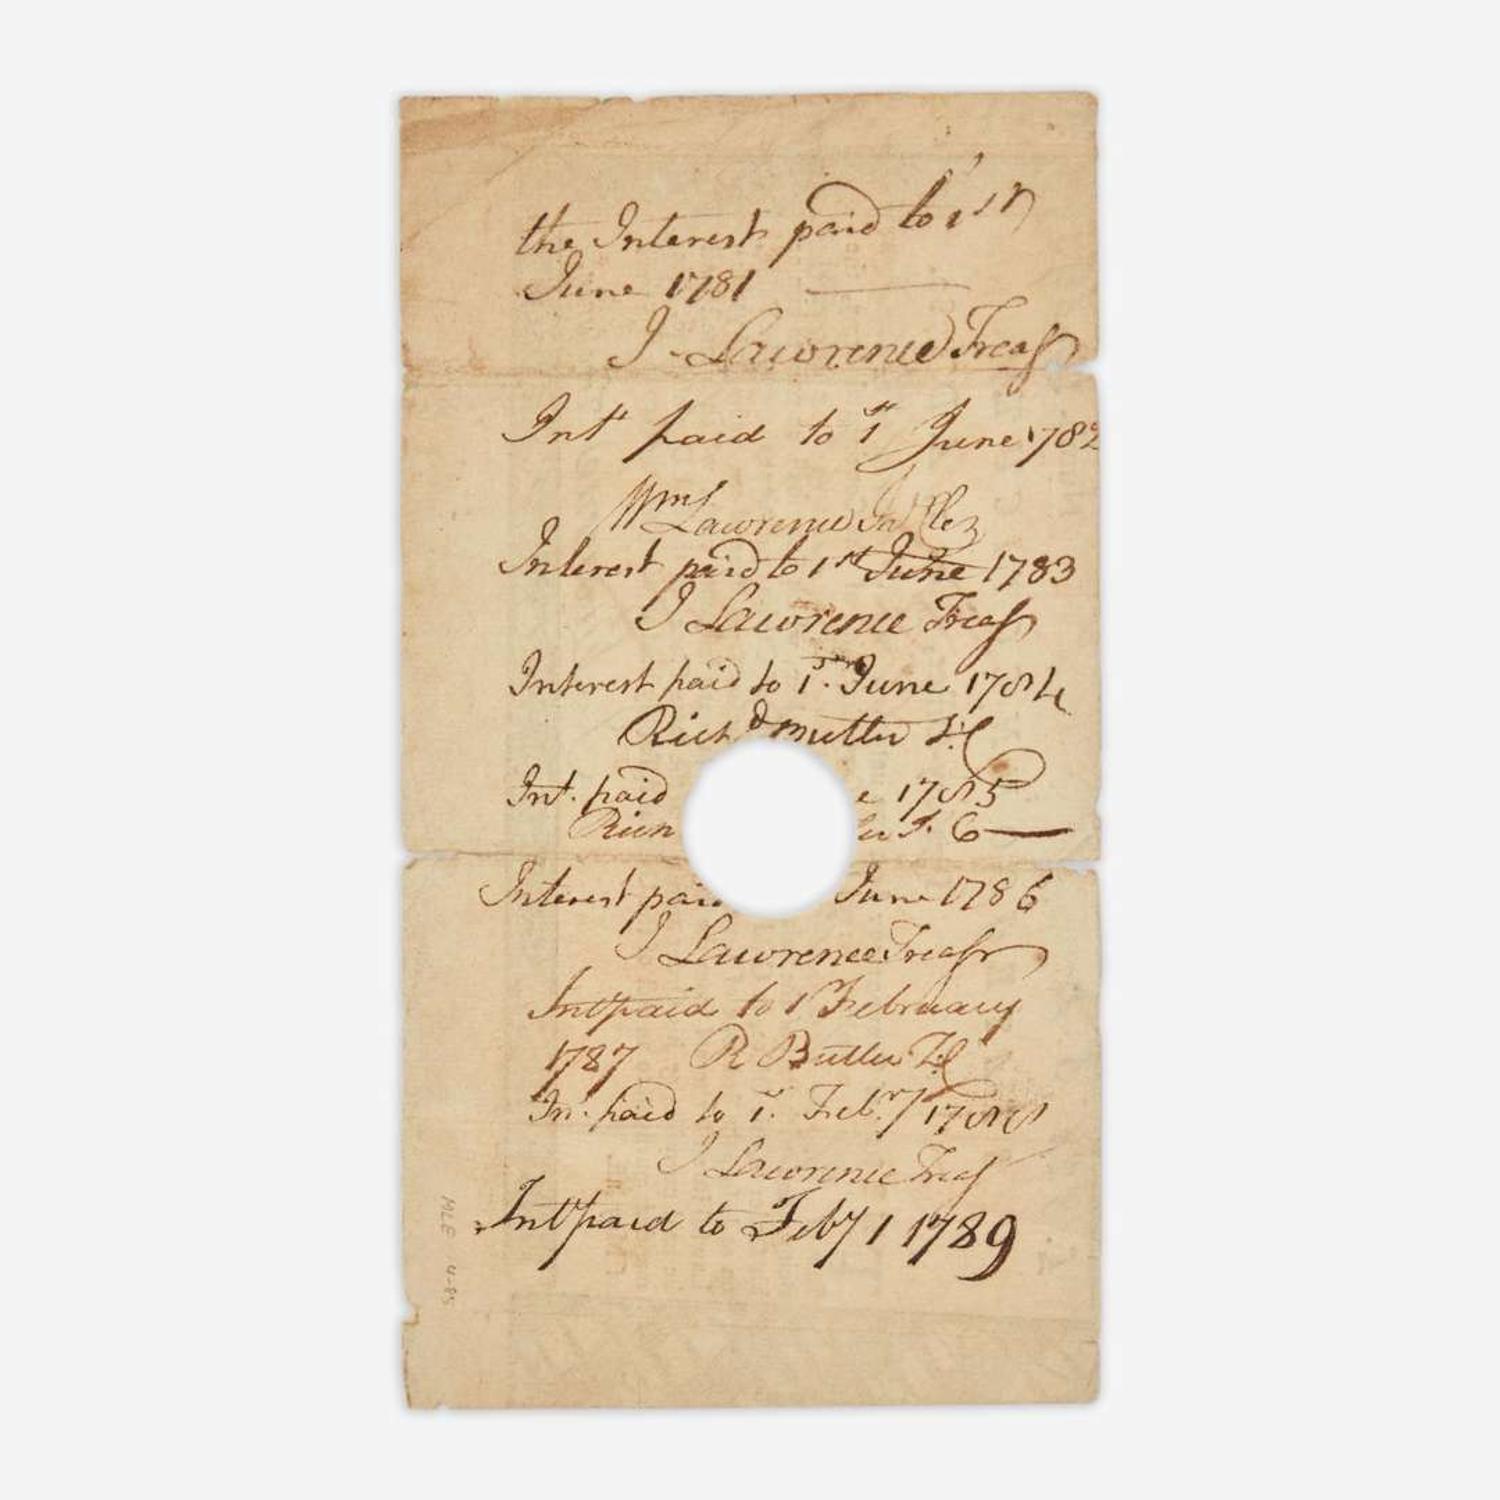 the Interest paid to 1st
June 1781
J Lawrence Treasr
Intt paid to 1st June 1782
Wm Lawrence
Interest paid to 1st June 1783
J Lawrence Treasr
Interest paid to 1st June 1784
Richd Butler
Int. paid e 1785
Rich
Interest paid June 1786
J Lawrence Treasr
Intt paid to 1st February
1787 R Butler
Int. paid to 1st Febry 1788
J Lawrence Treasr
Intt paid to Feby 1 1789